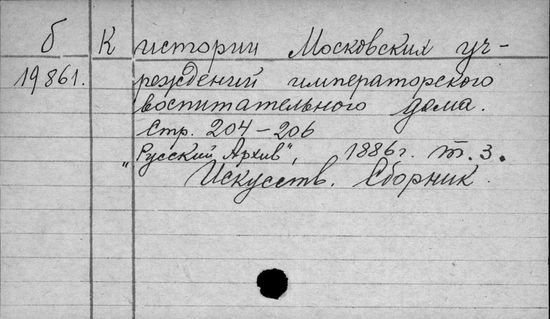 б К истории Московских уч-
19861. реждений императорского
воспитательного дома.
Стр. 204-206
"Русский Архив", 1886г. т. 3.
Искусств. Сборник.